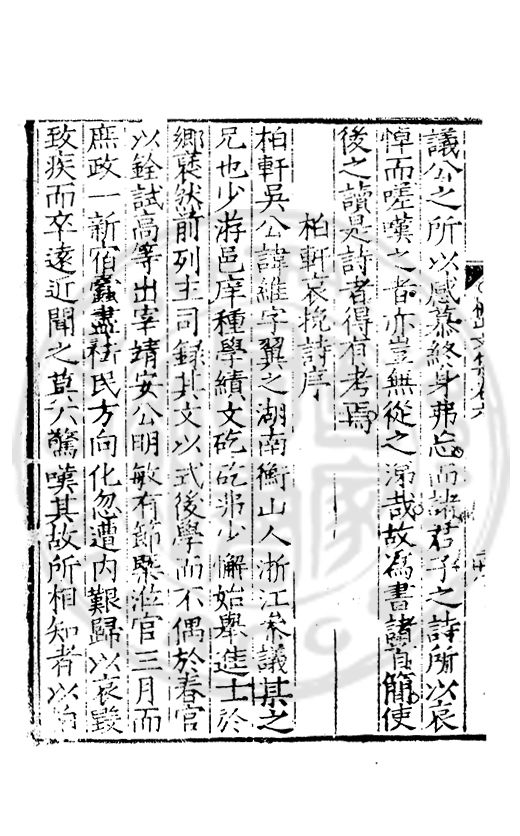 議公之所以感慕終身弗忘而諸君子之詩所以哀
悼而嗟嘆之者亦豈無從之涕哉故為書諸首簡使
後之讀是詩者得有考焉
柏軒哀挽詩序
柏軒吳公諱維字翼之湖南衡山人浙江叅議某之
兄也少游邑庠種學績文矻矻弗少懈始舉進士於
鄉褎然前列主司錄其文以式後學而不偶於春官
以銓試高等出宰靖安公明敏有節槩涖官三月而
庶政一新宿蠹盡祛民方向化忽遭內艱歸以哀毀
致疾而卒遠近聞之莫不驚嘆其故所相知者以